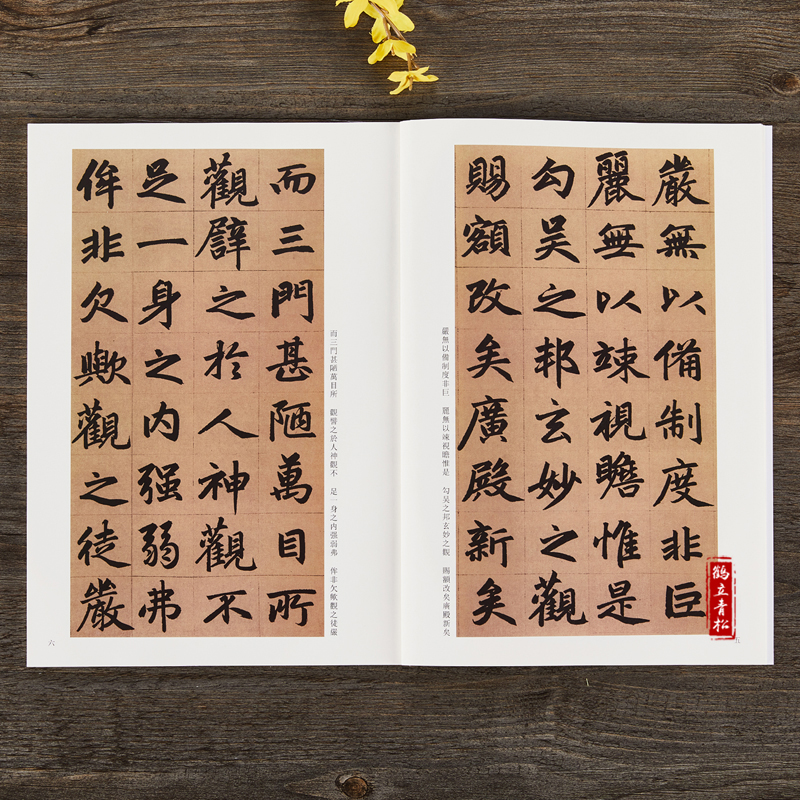 嚴無以備制度非巨
麗無以竦視瞻惟是
勾吴之邦玄妙之觀
賜額改矣廣殿新矣
嚴無以備制度非巨　麗無以竦視瞻惟是　勾吴之邦玄妙之觀　賜額改矣廣殿新矣
鹤立青松
五
而三門甚陋萬目所
觀譬之於人神觀不
足一身之内强弱弗
侔非欠歟觀之徒嚴
而三門甚陋萬目所　觀譬之於人神觀不　足一身之内强弱弗　侔非欠歟觀之徒嚴
六